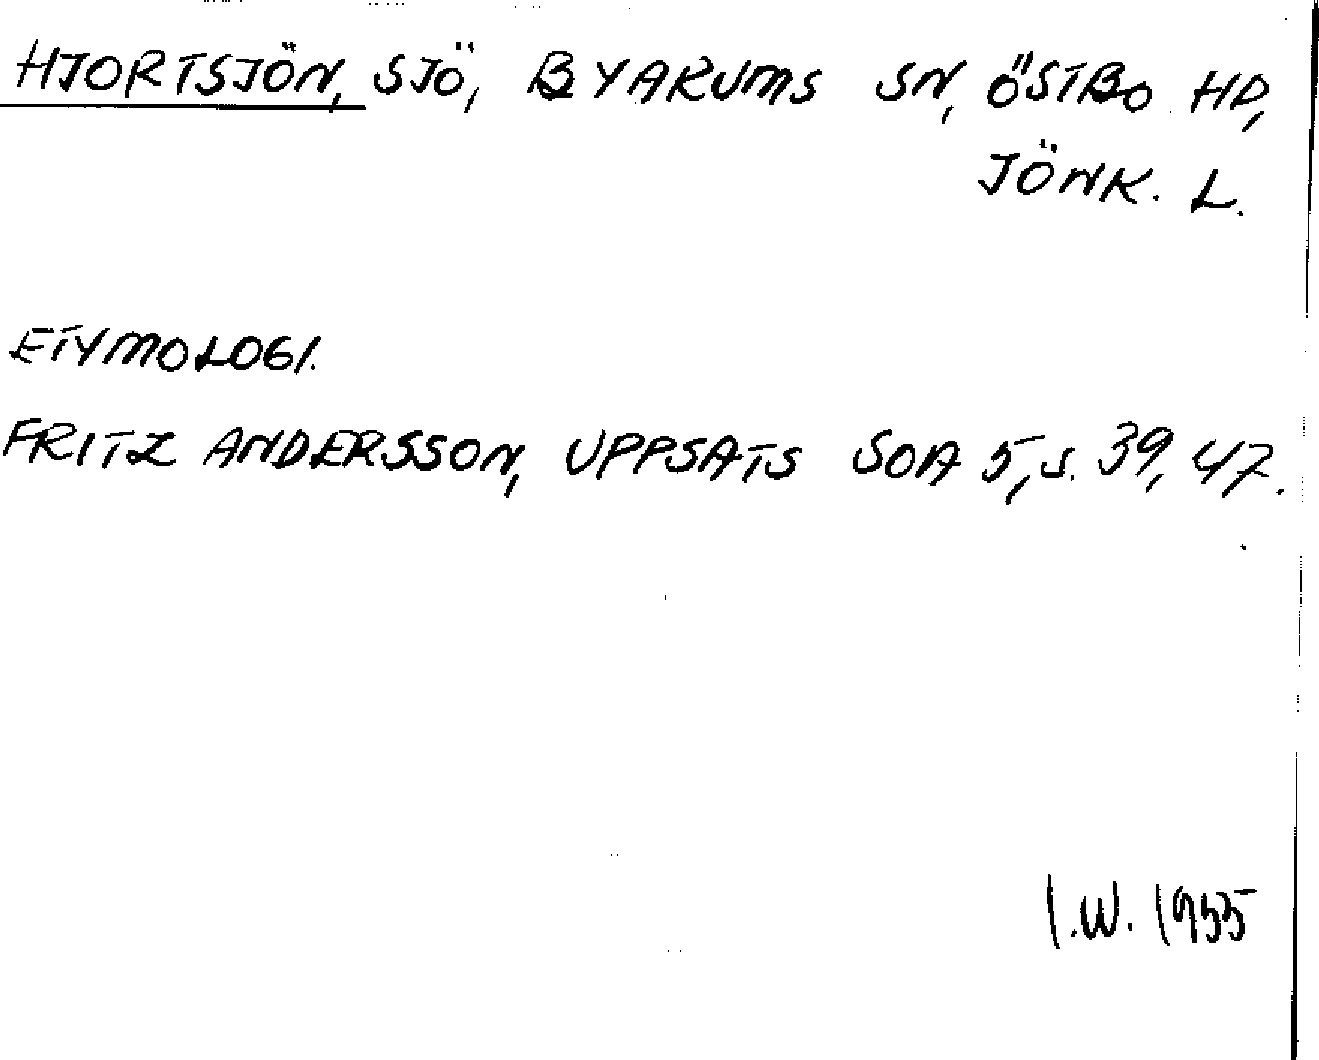 HJORTSJÖN, SJÖ, BYARUMS SN, ÖSTBO HD,
JÖNK. L.
ETYMOLOGI.
FRITZ ANDERSSON, UPPSATS SOA 5, S. 39, 47.
I.W. 1955